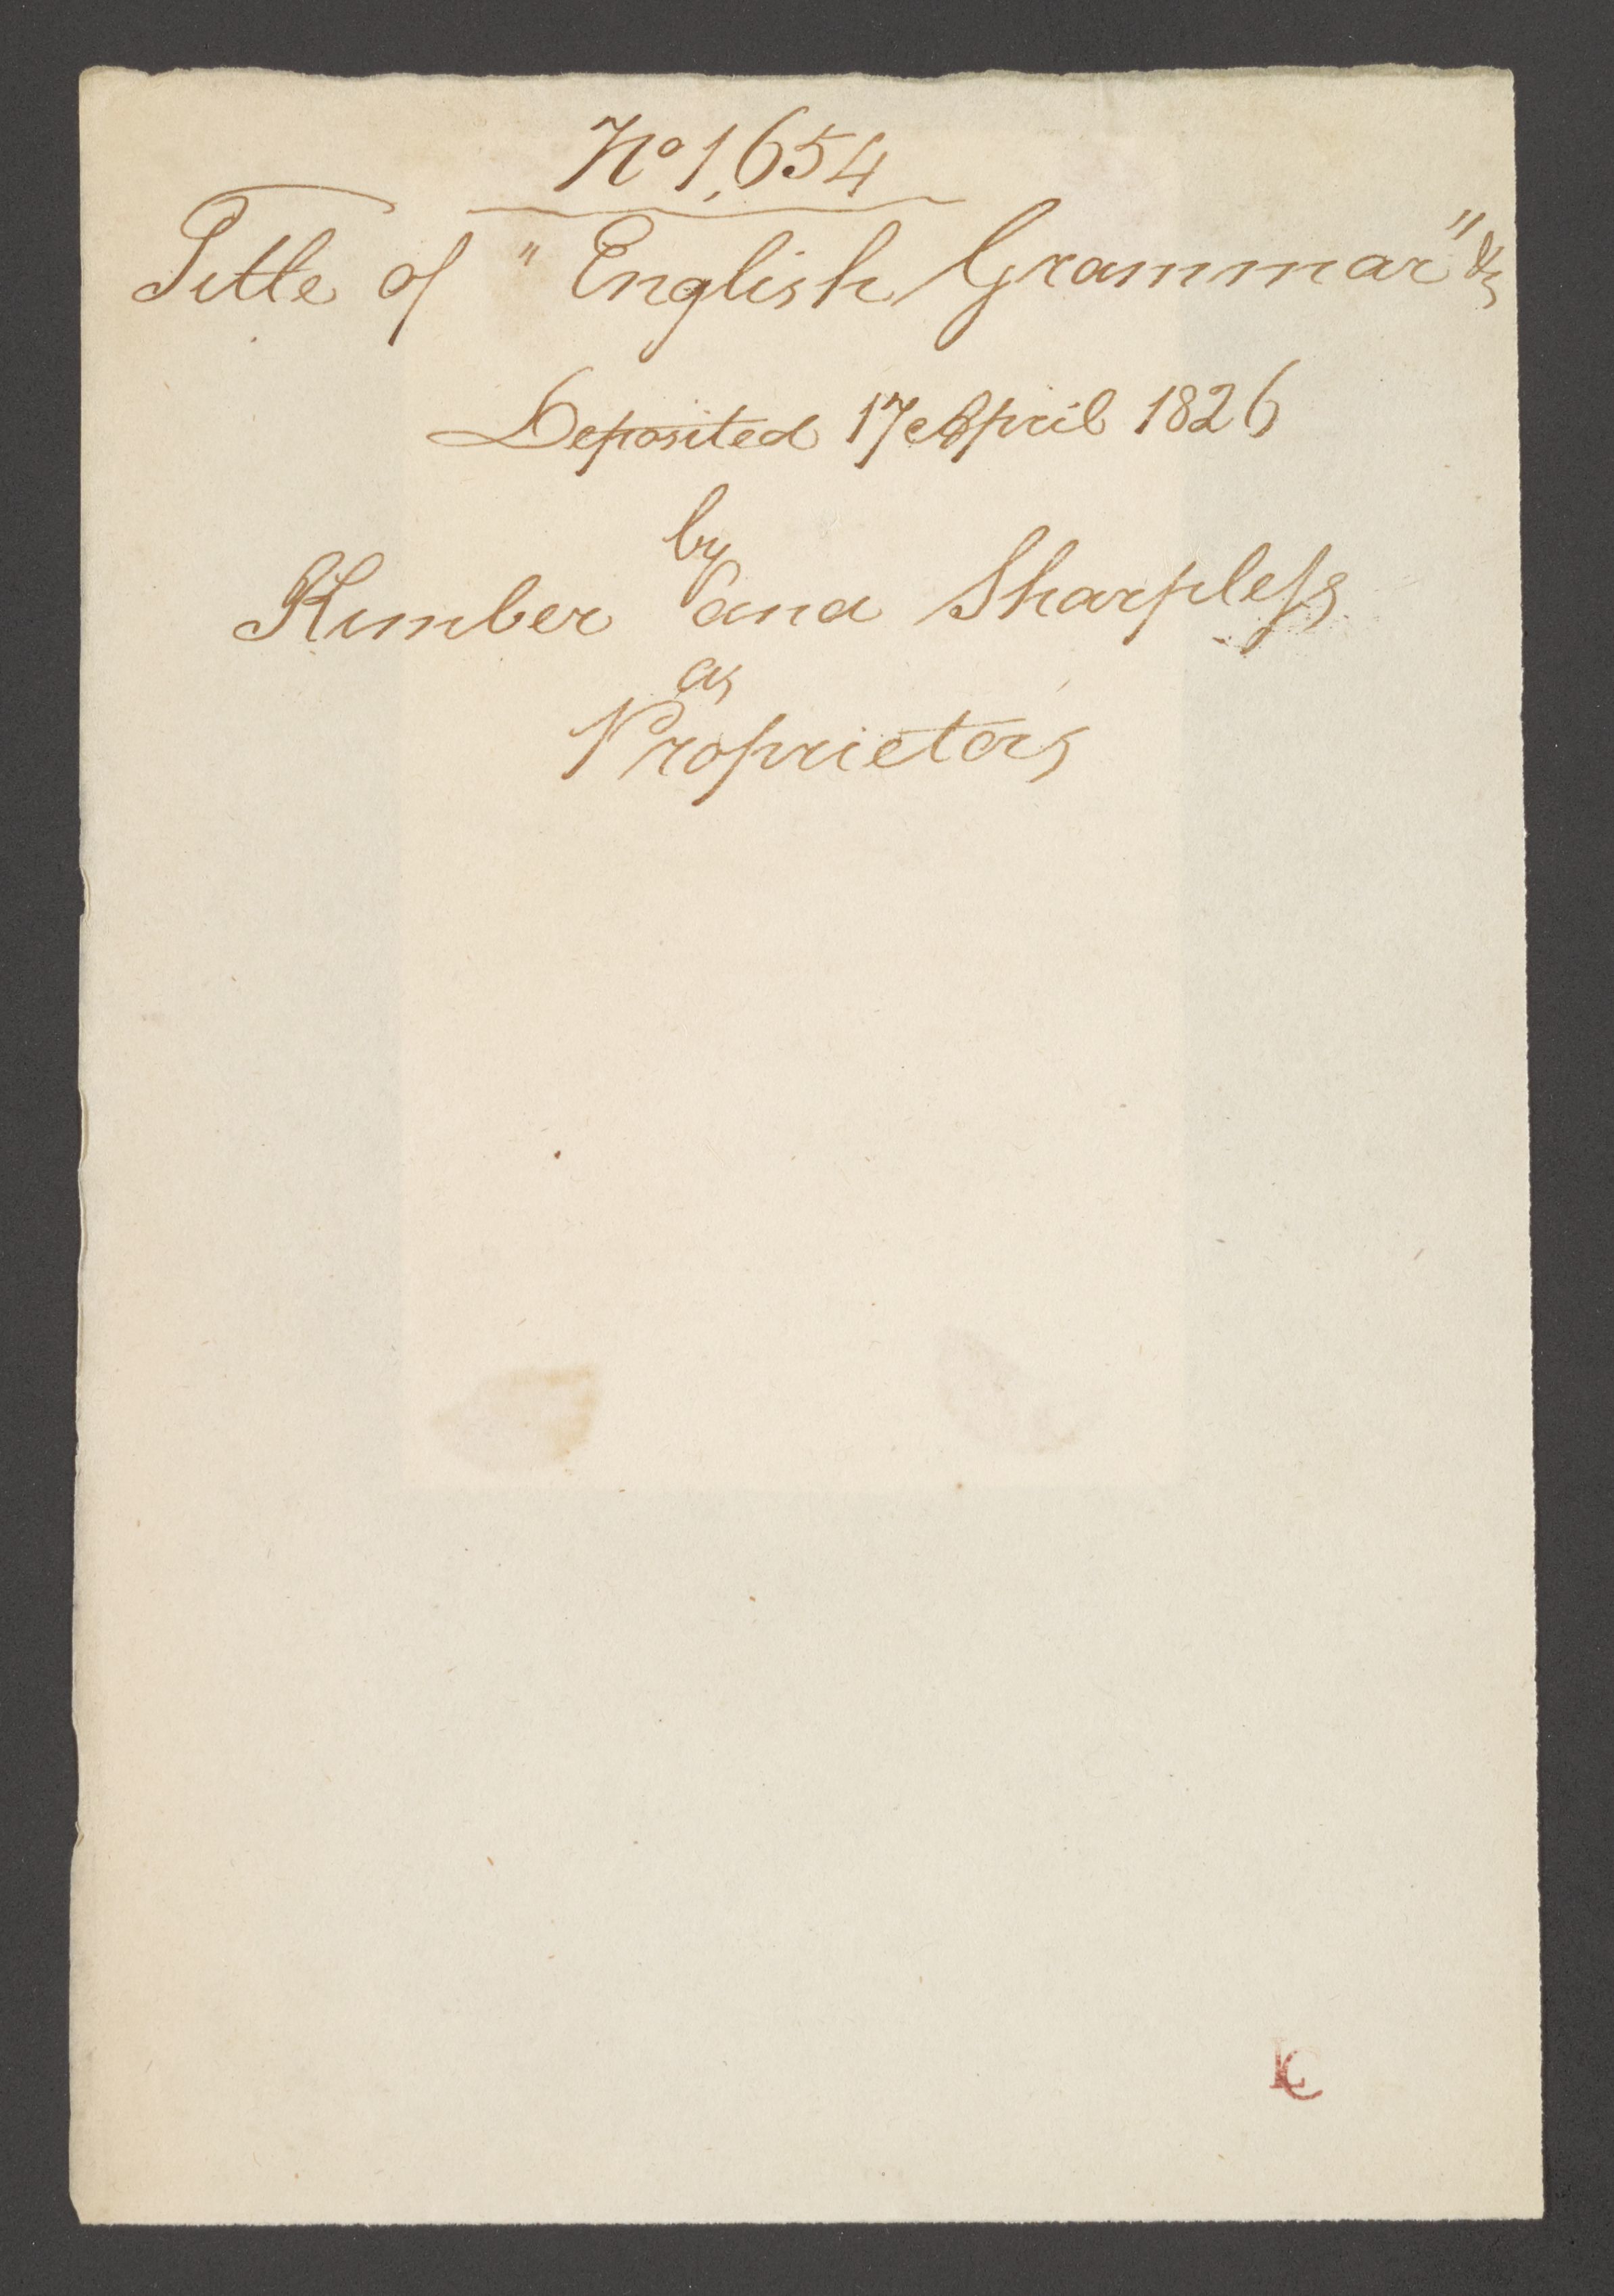 No 1,654
Title of "English Grammar" &c
Deposited 17 April 1826
by
Kimber and Sharpleſs
as
Proprietors
LC